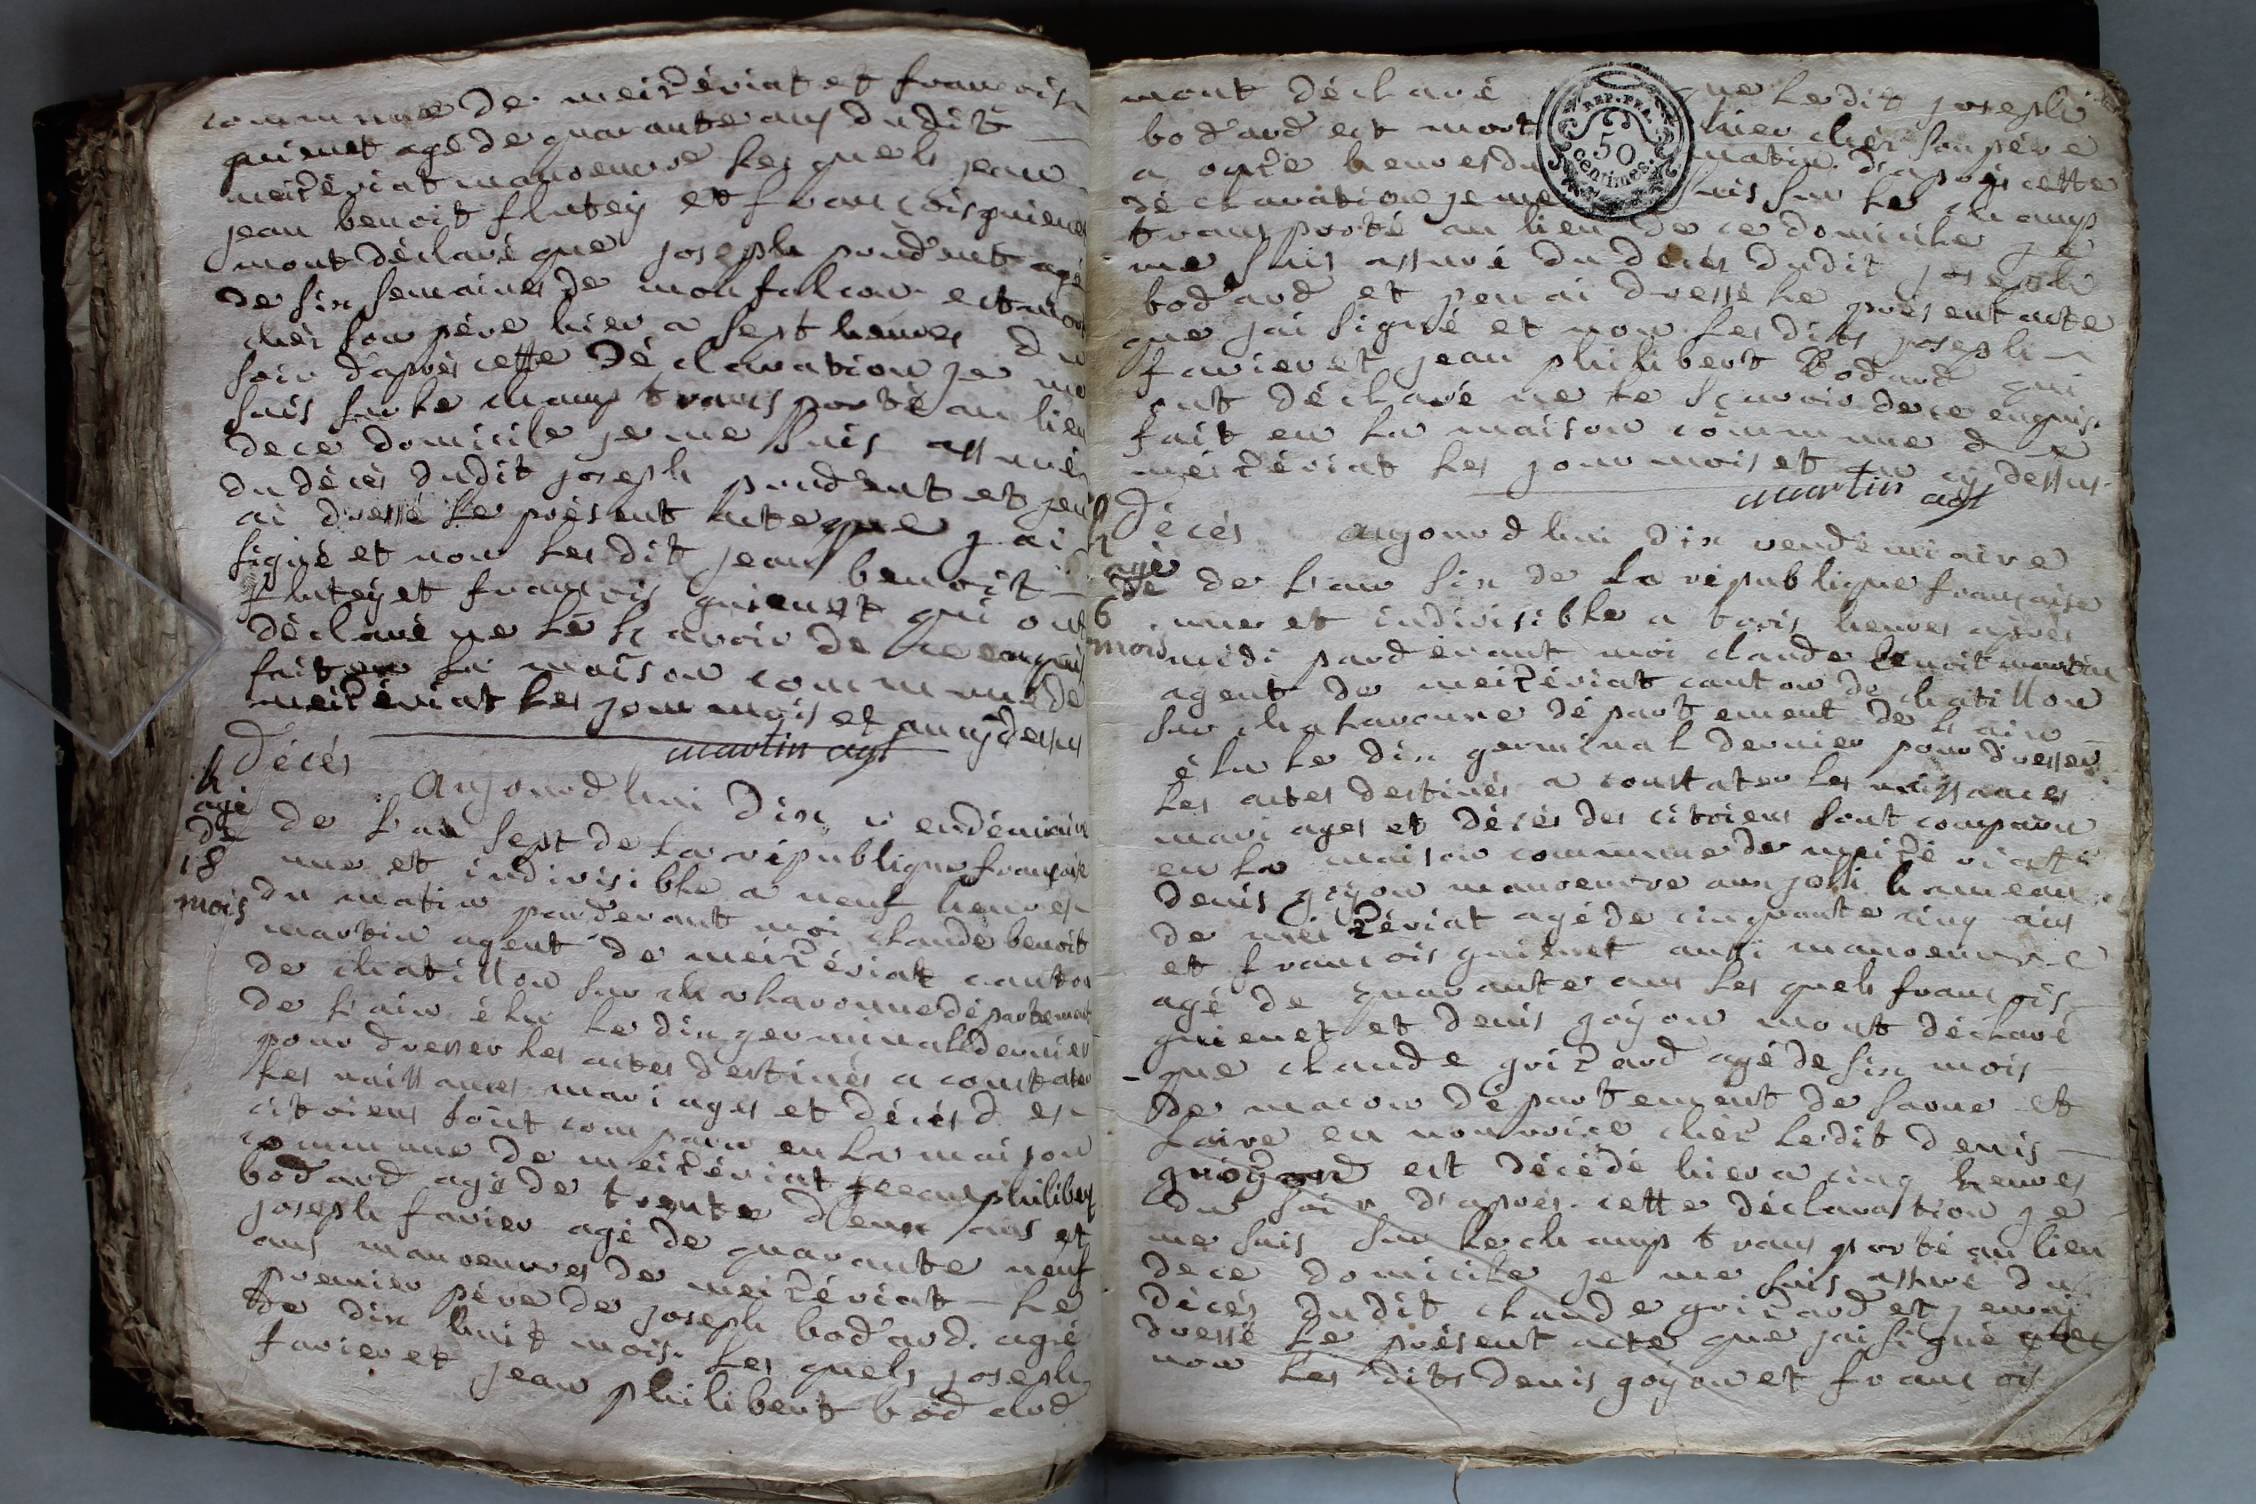 commune de meizériat et francois
guienet agé de quarante ans dudit
meizériat manoeuvre les quels jean
jean benoit flutey et francois guienet
mont déclaré que joseph prudent agé
de six semaines de monfalcon est mor
chés son pére hier a sept heures du
soir d'aprés cette déclaration je me
suis sur le champ transporté au lieu
de ce domicile je me suis assuré
du décès dudit joseph prudent et jen
ai dressé le présent acte que jai
signé et non les dit jean benoit
flutey et francois guienet qui ont
déclaré ne le scavoir de ce enquis
fait en la maison commune de
meizériat les jour mois et an cydessus
martin agt
Décés
h
agé
de
18
mois
Aujourd hui dix vendémiaire
de l'an sept de la république francaise
une et indivisible a neuf heures
du matin pardevant moi claude benoit
martin agent de meizériat canton
de chatillon sur chalaronne département
de l'ain élu le dix germinall dernier
pour dresser les actes destinés a constater
les naissances mariages et décés des
citoiens sont comparu en la maison
commune de meizériat jean philibert
bodard agé de trente deux ans et
joseph favier agé de quarante neuf
ans manoeuvres de meizériat le
premier pére de joseph bodard agé
de dix huit mois. les quels joseph
favier et jean philibert bodard
mont déclaré que ledit joseph
bodard est mort hier chés son pére
a onze heures du matin d'aprés cette
déclaration je me suis sur le champ
transporté au lieu de ce domicile je
me suis assuré du décés dudit joseph
bodard et jen ai dressé le présent acte
que jai signé et non les dits joseph
favier et jean philibert Bodard qui
ont déclaré ne le scavoir de ce enquis.
fait en la maison commune de
meizériat les jour mois et an cy dessus.
martin agt
REP. FRA.
50
centimes.
Décés
h
agé
de
6
mois
aujourd hui dix vendémiaire
de l'an six de la république francaise
une et indivisible a trois heures aprés
midi pardevant moi claude benoit martin
agent de meizériat canton de chatillon
sur chalaronne département de l'ain
élu le dix germinal dernier pour dresser
les actes destinés a constater les naissances
mariages et décés des citoiens sont comparu
en la maison commune de meizériat
denis goyon manoeuvre aux hameau
de meizériat agé de cinquante cinq ans
et francois guienet aussi manoeuvre
agé de quarante ans les quels francois
guienet et denis goyon mont déclaré
que claude grizard agé de six mois
de macon département de saone et
Loire en nourrice chés ledit denis
goyon est décédé hier a cinq heures
du soir d'aprés cette déclaration je
me suis sur le champ transporté au lieu
de ce domicile je me suis assuré du
décés dudit claude grizard et jen ai
dressé le présent acte que jai signé
non les dits denis goyon et francois